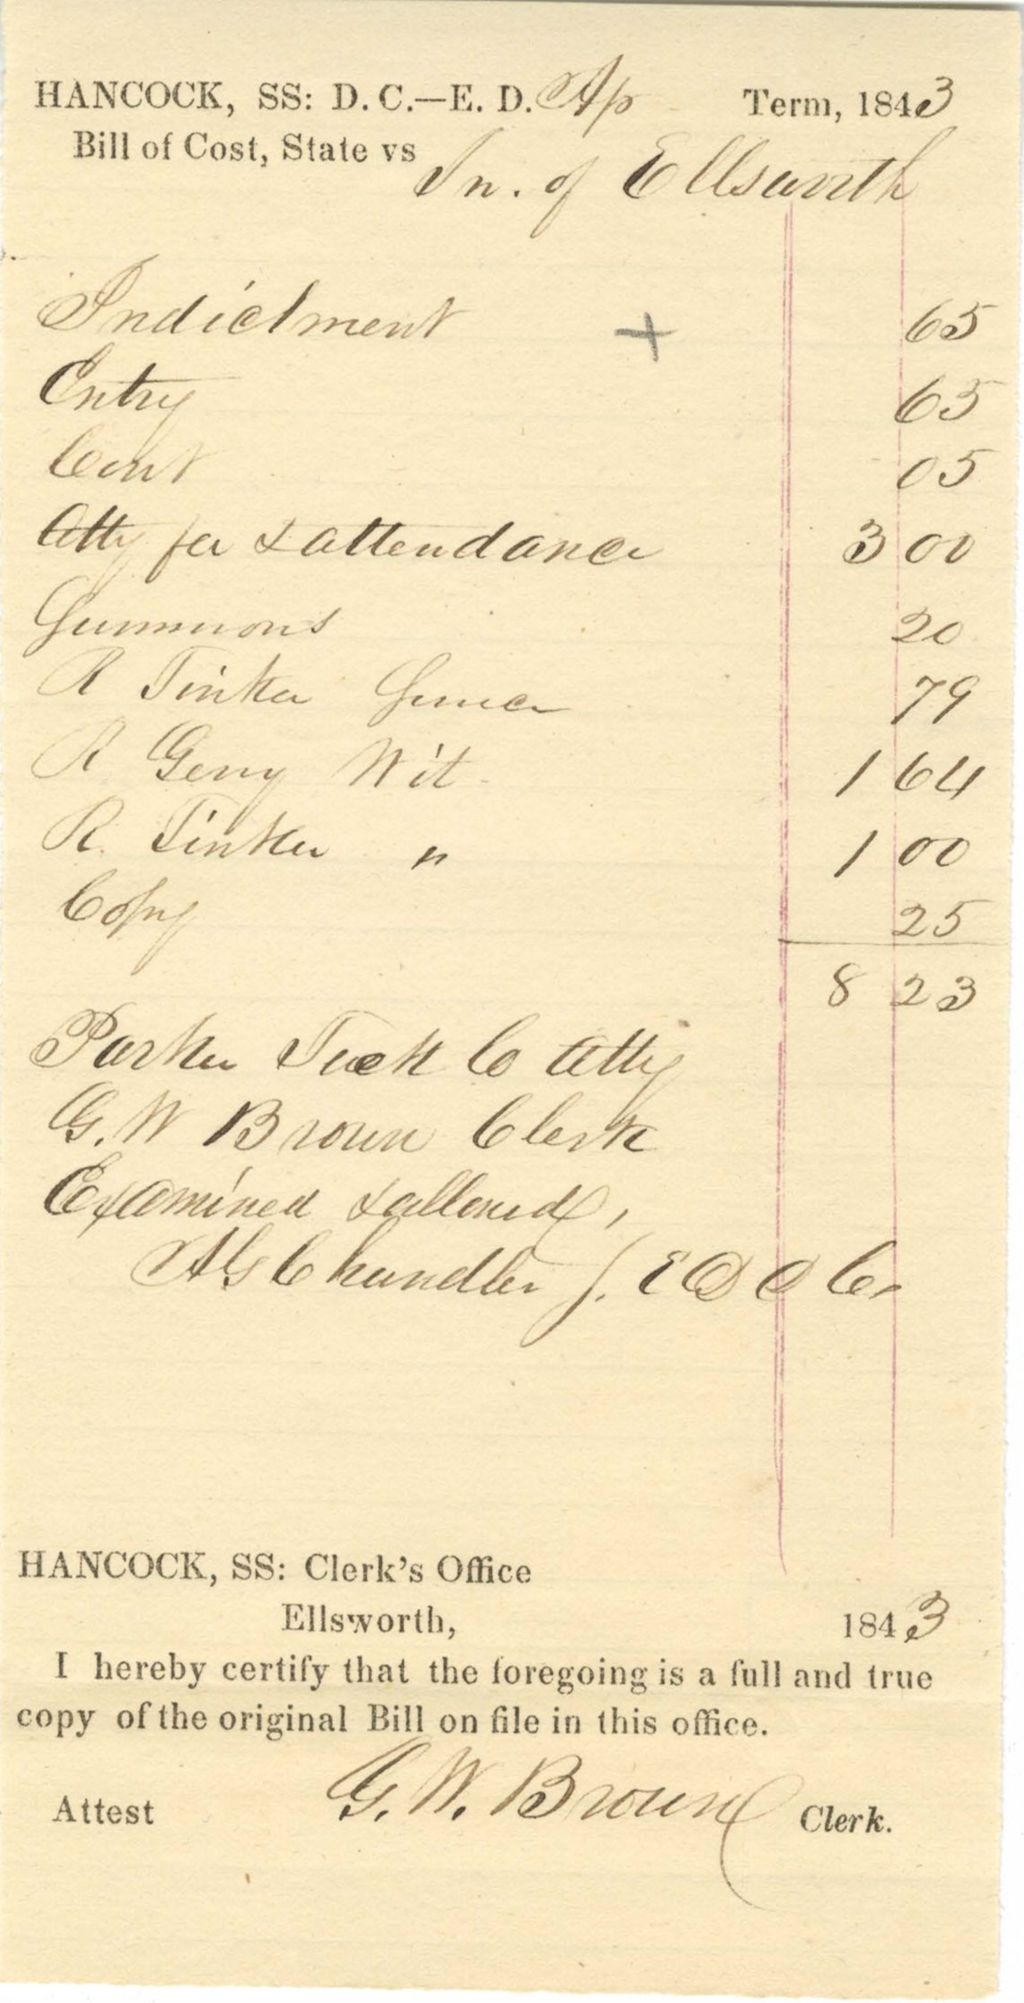 HANCOCK, SS: D. C.—E. D. Ap Term, 1843
Bill of Cost, State vs In. of Ellsworth
Indictment + 65
Entry 65
Cont 05
Atty fee & attendance 3 00
Summons 20
R Tinker Service 79
R Gerry Wit. 1 64
R. Tinker " 1 00
Copy 25
8 23
Parker Tuck Co Atty
G. W Brown Clerk
Examined & allowed,
A G Chandler J. E D D C.
HANCOCK, SS: Clerk's Office
Ellsworth, 1843
I hereby certify that the foregoing is a full and true
copy of the original Bill on file in this office.
Attest G. W. Brown Clerk.